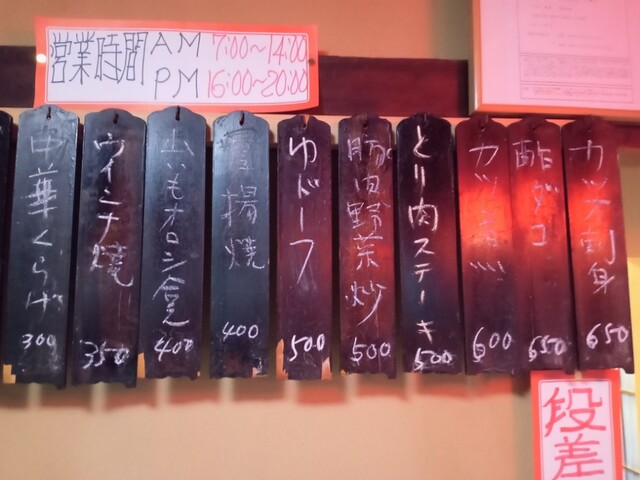 営業時間 AM 7:00〜14:00
PM 16:00〜20:00
カツオ刺身 650
酢ダコ 650
カツ煮 600
とり肉ステーキ 500
豚肉野菜炒 500
ゆドーフ 500
厚揚焼 400
山いもオロシ 400
ウインナ焼 350
中華くらげ 300
段差